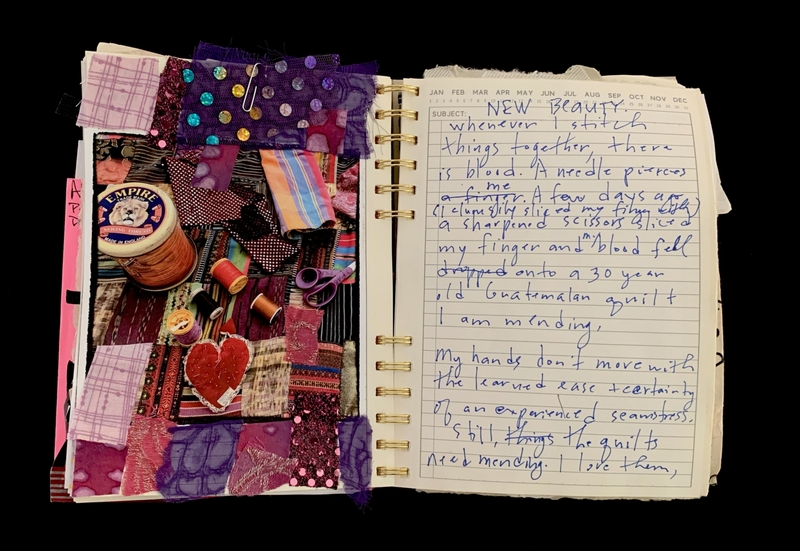 EMPIRE
STRONG
MADE IN ENGLAND
A
P
D
JAN FEB MAR APR MAY JUN JUL AUG SEP OCT NOV DEC
SUBJECT: NEW BEAUTY.
whenever I stitch
things together, there
is blood. A needle pierces
me
a finger. A few days ago
(I clumsily sliced my finger with)
a sharpened scissors sliced
my finger and my blood fell
dropped onto a 30 year
old Guatemalan quilt
I am mending.
My hands don't move with
the learned ease + certainty
of an experienced seamstress.
Still, things the quilts
need mending. I love them,